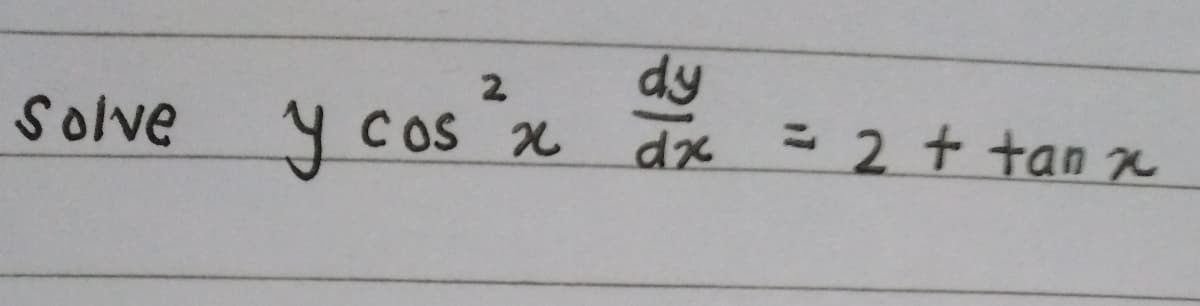 Solve y cos²x dy/dx = 2 + tan x